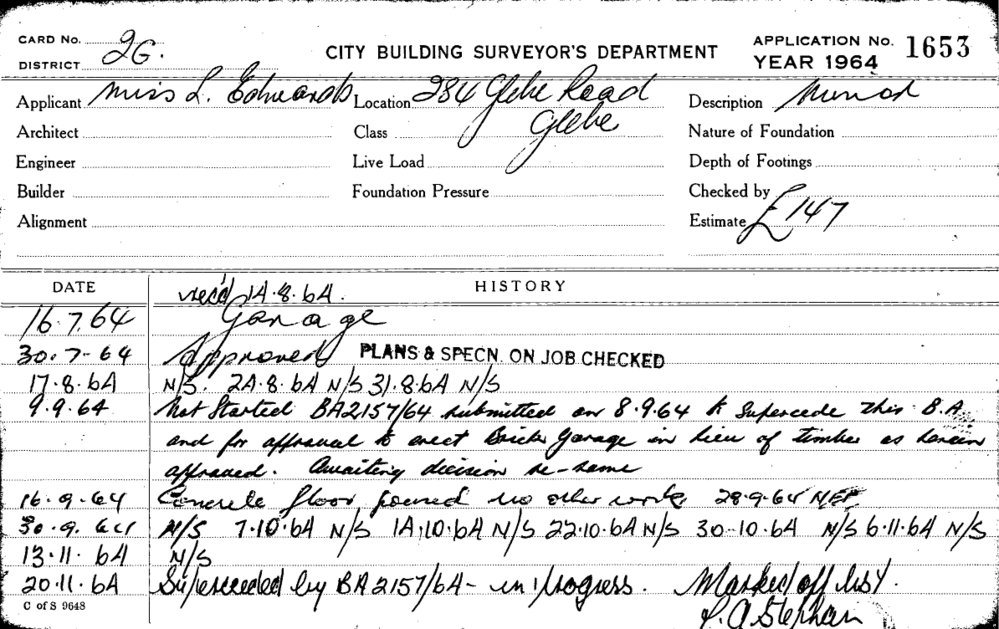 CARD No.
DISTRICT 2G.
CITY BUILDING SURVEYOR'S DEPARTMENT
APPLICATION No. 1653
YEAR 1964
Applicant Miss L. Edwards Location 284 Glebe Road Description Minor
Architect Class Glebe Nature of Foundation
Engineer Live Load Depth of Footings
Builder Foundation Pressure Checked by
Alignment Estimate £147
DATE HISTORY
recd 14.8.64.
16.7.64 Garage
30.7-64 Approved PLANS & SPECN. ON JOB CHECKED
17.8.64 N/S. 24.8.64 N/S 31.8.64 N/S
9.9.64 Not Started BA2157/64 submitted on 8.9.64 to Supercede this B.A.
and for approval to erect Brick Garage in lieu of timber as herein
approved. Awaiting decision re-same
16.9.64 Concrete floor poured no other work 28.9.64
30.9.64 N/S 7.10.64 N/S 14.10.64 N/S 22.10.64 N/S 30-10.64 N/S 6.11.64 N/S
13.11.64 N/S
20.11.64 Superceeded by BA2157/64 - in progress. Marked off list.
C of S 9648